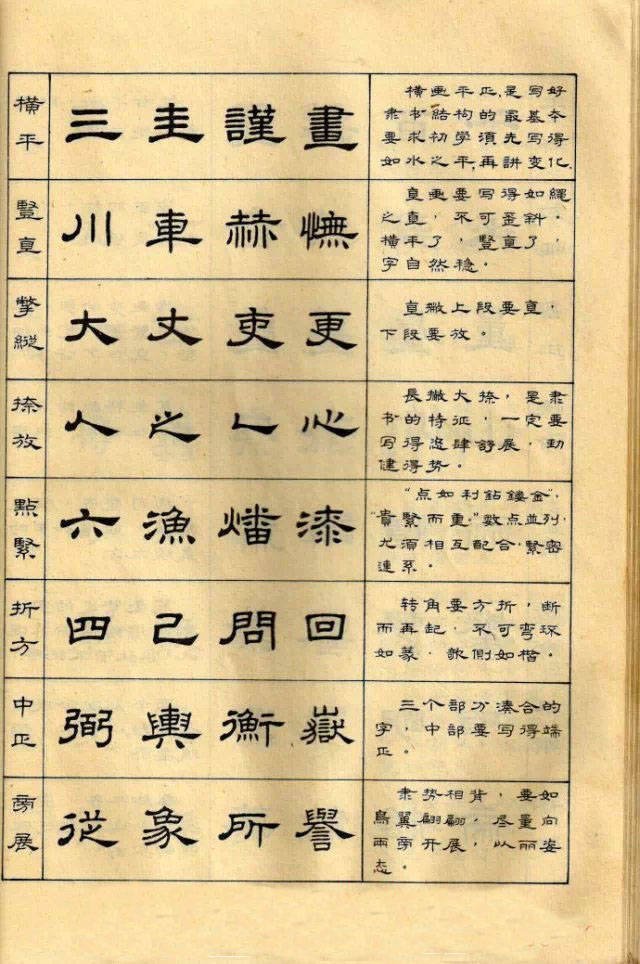 横平
三 圭 謹 畫
横画平正,是写好
隶书结构的最基本
要求初学須先写得
如水之平,再讲变化.
豎直
川 車 赫 憮
直画要写得如繩
之直,不可歪斜.
横平了,豎直了,
字自然稳.
撆縱
大 丈 吏 更
直撇上段要直,
下段要放.
捺放
人 之 乀 心
長撇大捺,是隶
书的特征,一定要
写得恣肆舒展,劲
健得势.
點緊
六 漁 燔 漆
"点如利鉆鏤金",
"貴緊而重."数点並列,
尤須相互配合.緊密
連系.
折方
四 己 問 回
转角要方折,断
而再起,不可弯环
如篆,欹側如楷.
中正
弼 輿 衡 嶽
三个部分凑合的
字,中部要写得端
正.
旁展
従 象 所 譽
隶势相背,要如
鳥翼翩翩,尽量向
两旁开展,以丽姿
态.